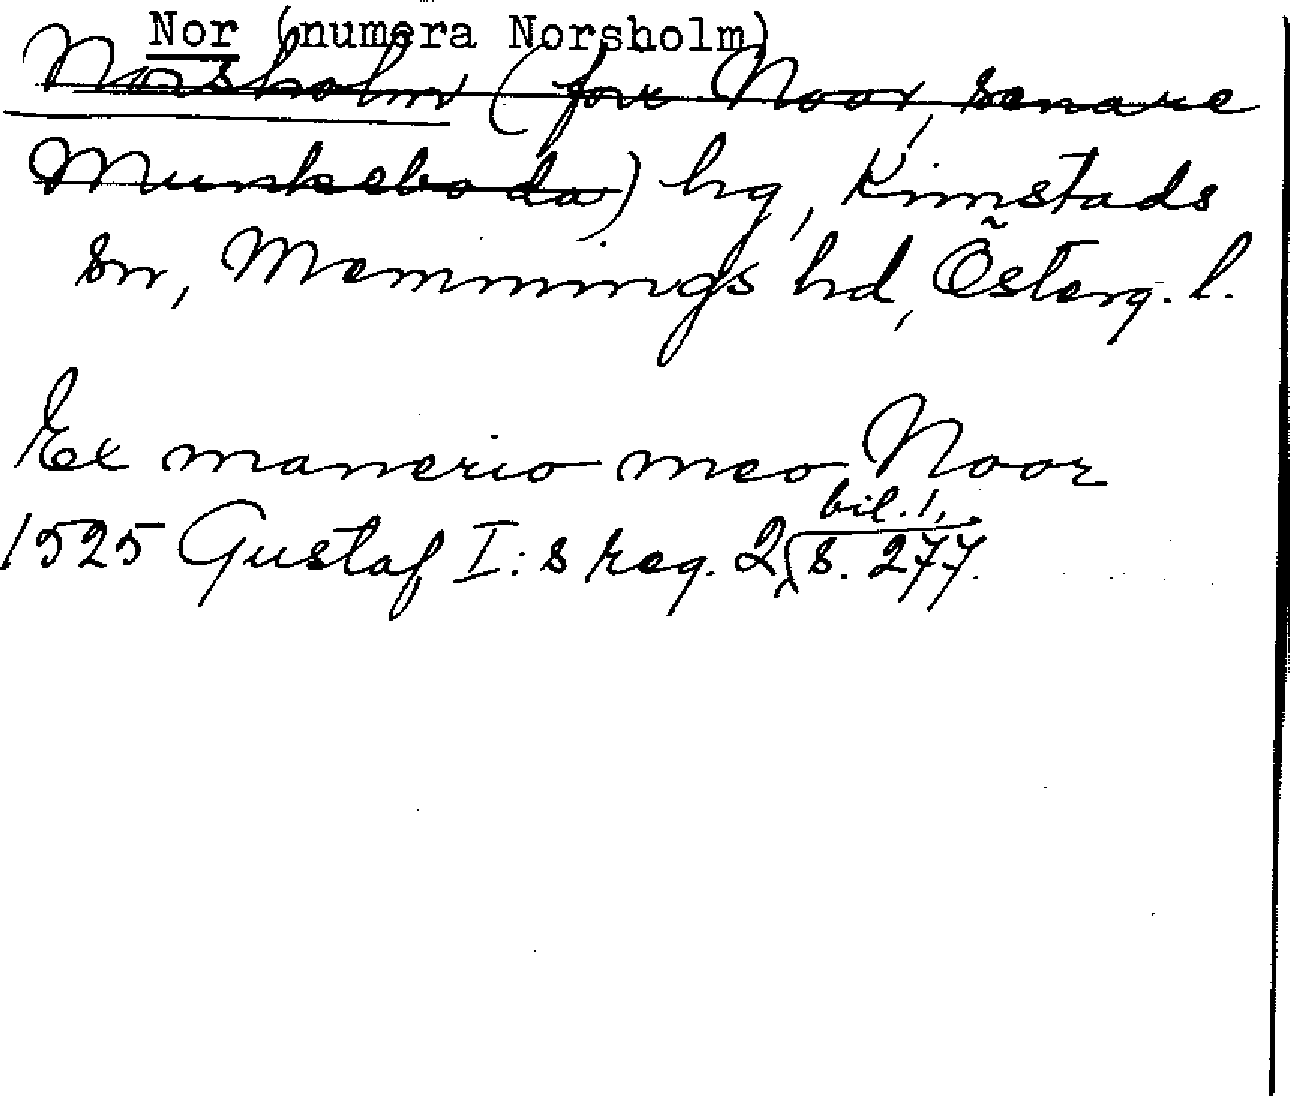 Nor (numera Norsholm)
Norsholm (förr Noor, senare
Munkeboda) hg, Kimstads
sn, Memmings hd, Österg. l.
Ex manerio meo Noor
bil. 1,
1525 Gustaf I:s reg. 2, s. 277.